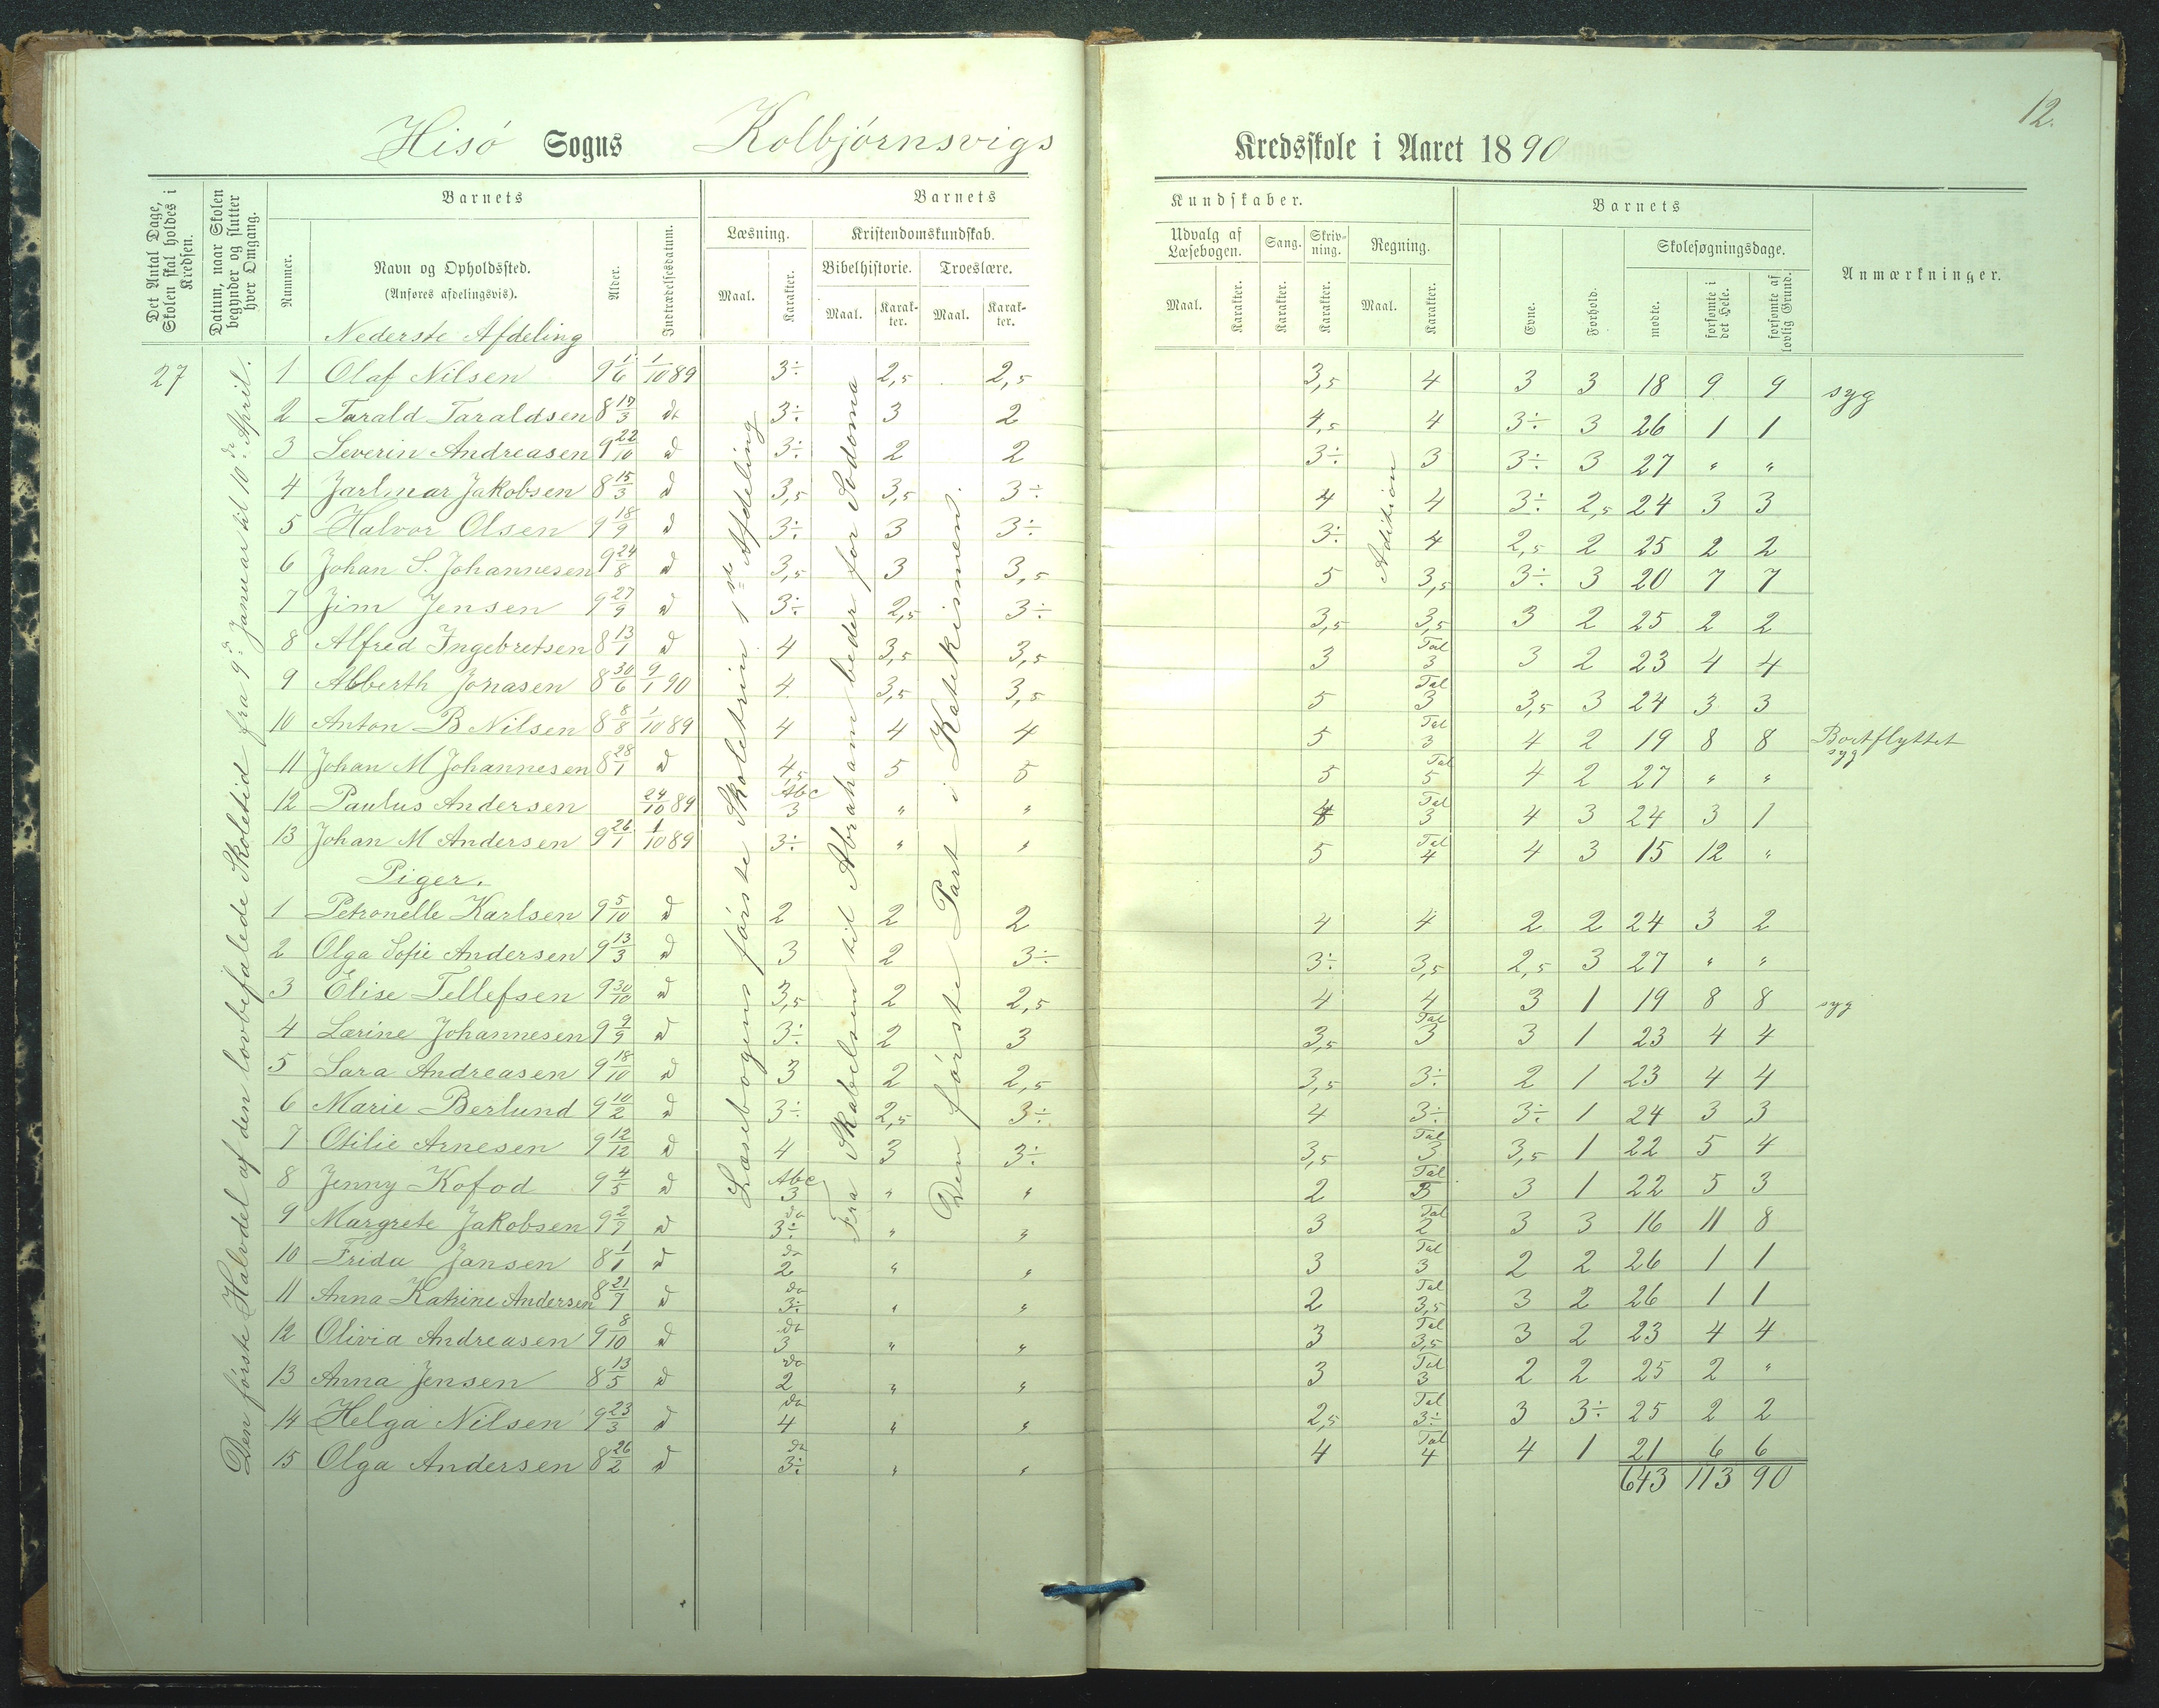 12.
Hisö Sogns Kolbjörnsvigs Kredsskole i Aaret 1890
Det Antal Dage, Skolen skal holdes i Kredsen.
Datum, naar Skolen begynder og slutter hver Omgang.
Barnets
Nummer.
Navn og Opholdssted.
(Anføres afdelingsvis).
Alder.
Indtrædelsesdatum.
Barnets Kundskaber.
Læsning.
Maal.
Karakter.
Kristendomskundskab.
Bibelhistorie.
Maal.
Karakter.
Troeslære.
Maal.
Karakter.
Udvalg af Læsebogen.
Maal.
Karakter.
Sang.
Karakter.
Skrivning.
Karakter.
Regning.
Maal.
Karakter.
Barnets
Evne.
Forhold.
Skolesøgningsdage.
mødte.
forsømte i det Hele.
forsømte af lovlig Grund.
Anmærkninger.
27
Den første Halvdel af den lovbefalede Skoletid fra 9d. Januar til 10de April.
Læsebogens förste Skoletrin 1ste Afdeling
Fra Skabelsen til Abraham beder for Sodoma
Den förste Part i Katekismen.
Adition
Nederste Afdeling
1 Olaf Nilsen 9 1/6 1/10 89 3÷ 2,5 2,5 3,5 4 3 3 18 9 9 syg
2 Tarald Taraldsen 8 17/3 do 3÷ 3 2 4,5 4 3÷ 3 26 1 1
3 Severin Andreasen 9 22/10 d 3÷ 2 2 3÷ 3 3÷ 3 27 " "
4 Jarlmar Jakobsen 8 15/3 d 3,5 3,5 3÷ 4 4 3÷ 2,5 24 3 3
5 Halvor Olsen 9 18/9 d 3÷ 3 3÷ 3÷ 4 2,5 2 25 2 2
6 Johan S. Johannesen 9 24/8 d 3,5 3 3,5 5 3,5 3÷ 3 20 7 7
7 Jim Jensen 9 27/9 d 3÷ 2,5 3÷ 3,5 3,5 3 2 25 2 2
8 Alfred Ingebretsen 8 13/1 d 4 3,5 3,5 3 Tal 3 3 2 23 4 4
9 Abberth Jonasen 8 30/6 9/1 90 4 3,5 3,5 5 Tal 3 3,5 3 24 3 3
10 Anton B Nilsen 8 8/8 1/10 89 4 4 4 5 Tal 3 4 2 19 8 8 Bortflyttet syg
11 Johan M Johannesen 8 28/1 d 4,5 5 5 5 Tal 5 4 2 27 " "
12 Paulus Andersen 24/10 89 Abc 3 " " 4 Tal 3 4 3 24 3 1
13 Johan M Andersen 9 26/1 1/10 89 3÷ " " 5 Tal 4 4 3 15 12 "
Piger.
1 Petronelle Karlsen 9 5/10 d 2 2 2 4 4 2 2 24 3 2
2 Olga Sofie Andersen 9 13/3 d 3 2 3÷ 3÷ 3,5 2,5 3 27 " "
3 Elise Tellefsen 9 30/10 d 3,5 2 2,5 4 4 3 1 19 8 8 syg
4 Lærine Johannesen 9 9/9 d 3÷ 2 3 3,5 Tal 3 3 1 23 4 4
5 Sara Andreasen 9 18/10 d 3 2 2,5 3,5 3÷ 2 1 23 4 4
6 Marie Berlund 9 10/2 d 3÷ 2,5 3÷ 4 3÷ 3÷ 1 24 3 3
7 Otilie Arnesen 9 12/12 d 4 3 3÷ 3,5 Tal 3 3,5 1 22 5 4
8 Jenny Kofod 9 4/5 d Abc 3 " " 2 Tal 3 3 1 22 5 3
9 Margrete Jakobsen 9 2/7 d do 3÷ " " 3 Tal 2 3 3 16 11 8
10 Frida Jansen 8 1/1 d do 2 " " 3 Tal 3 2 2 26 1 1
11 Anna Katrine Andersen 8 21/7 d do 3÷ " " 2 Tal 3,5 3 2 26 1 1
12 Olivia Andreasen 9 8/10 d do 3 " " 3 Tal 3,5 3 2 23 4 4
13 Anna Jensen 8 13/5 d do 2 " " 3 Tal 3 2 2 25 2 "
14 Helga Nilsen 9 23/3 d do 4 " " 2,5 Tal 3÷ 3 3÷ 25 2 2
15 Olga Andersen 8 26/2 d do 3÷ " " 4 Tal 4 4 1 21 6 6
643 113 90